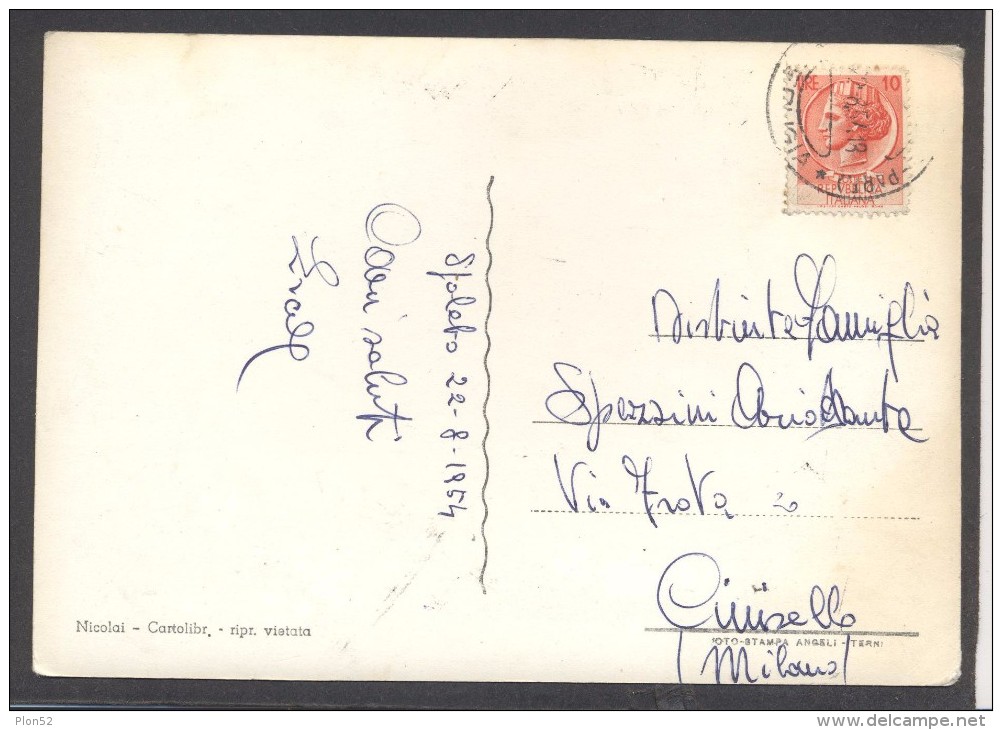 Spoleto 22-8-1954
Cari saluti
LIRE 10
REPVBBLICA
ITALIANA
Distinta Famiglia
Spezzini Ariodante
Via Frova 2
Cinisello
(Milano)
Nicolai - Cartolibr. - ripr. vietata
FOTO-STAMPA ANGELI - TERNI
Plon52
www.delcampe.net